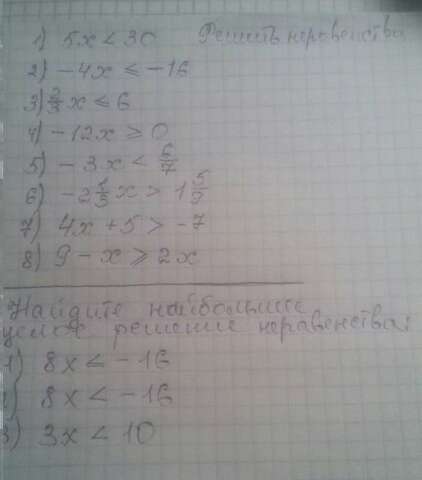 1) 5x < 30 Решить неравенства
2) -4x ≤ -16
3) 2/3 x ≤ 6
4) -12x ≥ 0
5) -3x < 6/7
6) -2 1/3 x > 1 5/9
7) 4x + 5 > -7
8) 9 - x ⩾ 2x
Найдите наибольшие
целое решение неравенства:
1) 8x < -16
2) 8x < -16
3) 3x < 10